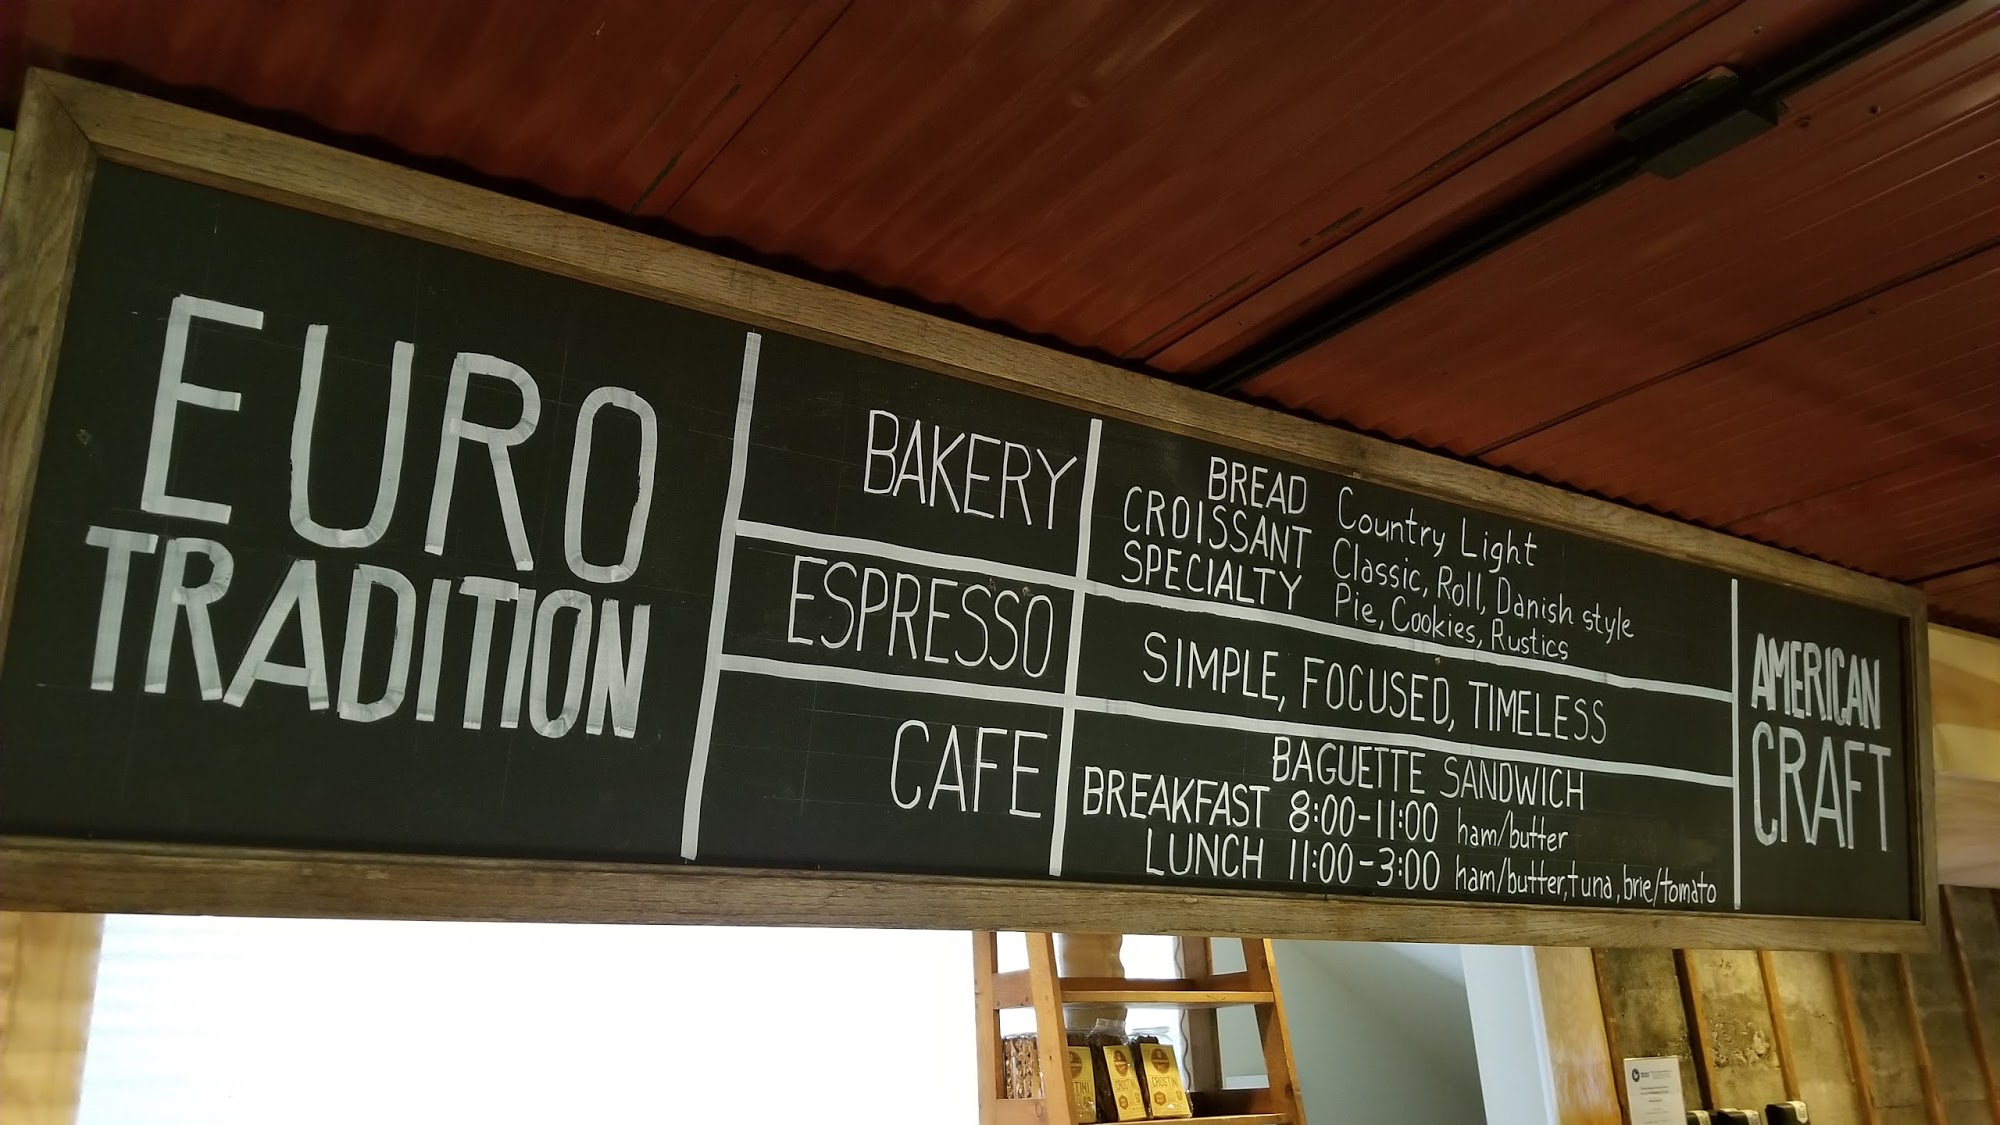 EURO
TRADITION
BAKERY
BREAD Country Light
CROISSANT Classic, Roll, Danish style
SPECIALTY Pie, Cookies, Rustics
ESPRESSO
SIMPLE, FOCUSED, TIMELESS
CAFE
BAGUETTE SANDWICH
BREAKFAST 8:00-11:00 ham/butter
LUNCH 11:00-3:00 ham/butter, tuna, brie/tomato
AMERICAN
CRAFT
CROSTINI
CROSTINI